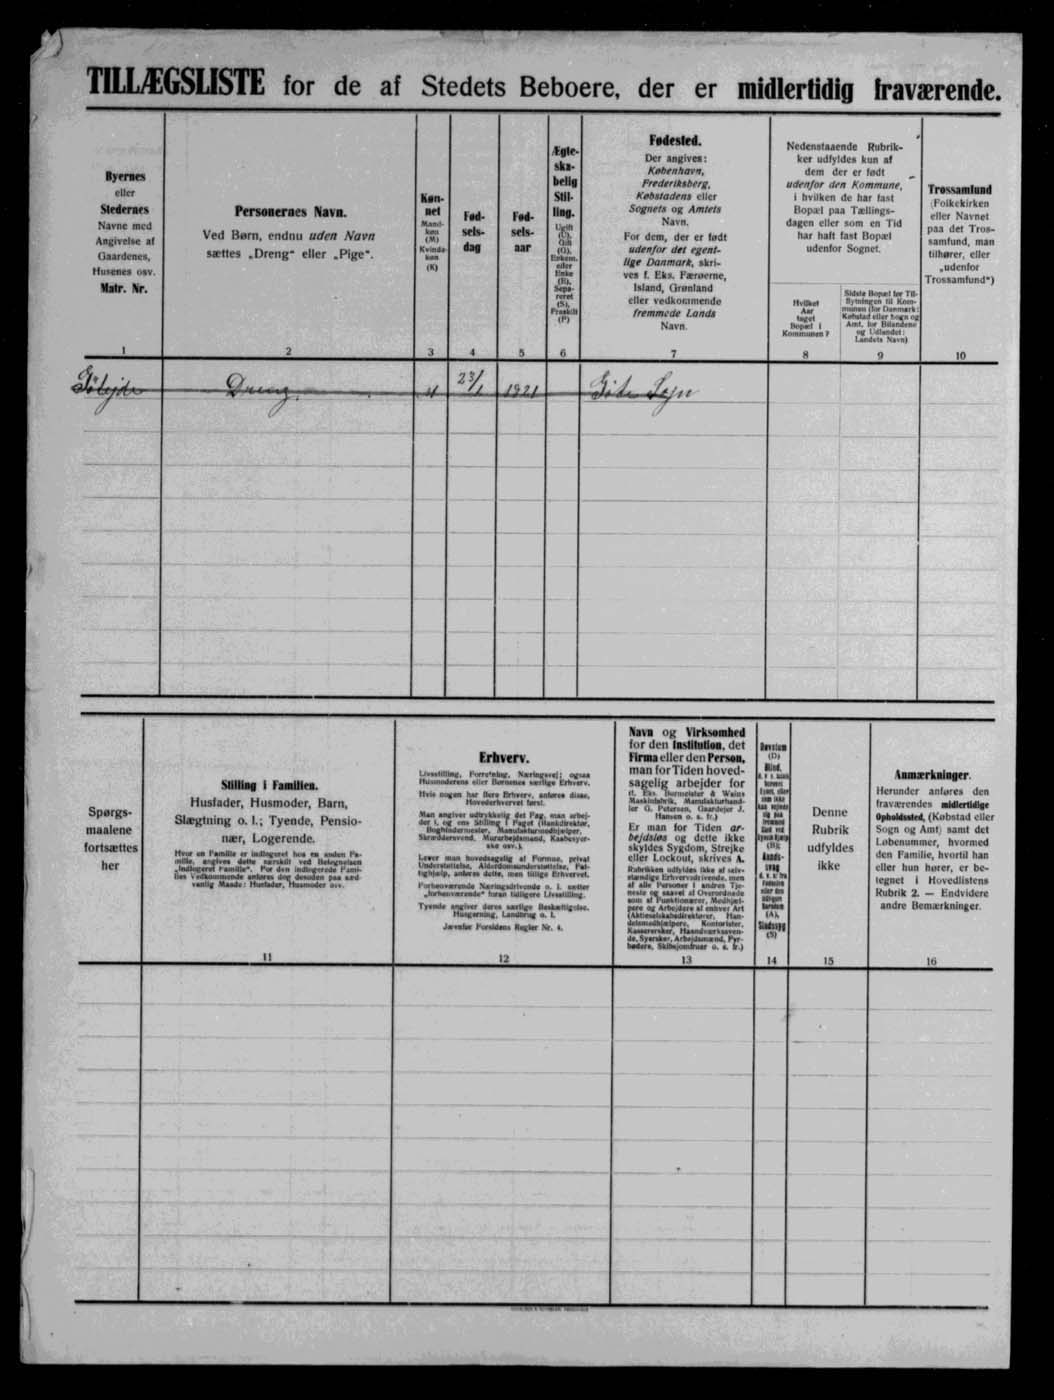 TILLÆGSLISTE for de af Stedets Beboere, der er midlertidig fraværende.
Byernes
eller
Stedernes
Navne med
Angivelse af
Gaardenes,
Husenes osv.
Matr. Nr.
1
Personernes Navn.
Ved Børn, endnu uden Navn
sættes „Dreng“ eller „Pige“.
2
Køn-
net
Mand-
køn
(M)
Kvinde-
køn
(K)
3
Fød-
sels-
dag
4
Fød-
sels-
aar
5
Ægte-
ska-
belig
Stil-
ling.
Ugift
(U),
Gift
(G),
Enkem.
eller
Enke
(E),
Sepa-
reret
(S),
Fraskilt
(F)
6
Fødested.
Der angives:
København,
Frederiksberg,
Købstadens eller
Sognets og Amtets
Navn.
For dem, der er født
udenfor det egent-
lige Danmark, skri-
ves f. Eks. Færøerne,
Island, Grønland
eller vedkommende
fremmede Lands
Navn.
7
Nedenstaaende Rubrik-
ker udfyldes kun af
dem der er født
udenfor den Kommune,
i hvilken de har fast
Bopæl paa Tællings-
dagen eller som en Tid
har haft fast Bopæl
udenfor Sognet.
Hvilket
Aar
taget
Bopæl i
Kommunen?
8
Sidste Bopæl før Til-
flytningen til Kom-
munen (for Danmark:
Købstad eller Sogn og
Amt, for Bilandene
og Udlandet:
Landets Navn)
9
Trossamfund
(Folkekirken
eller Navnet
paa det Tros-
samfund, man
tilhører, eller
„udenfor
Trossamfund“)
10
Dreng. 23/1 1921 Sogn
Spørgs-
maalene
fortsættes
her
Stilling i Familien.
Husfader, Husmoder, Barn,
Slægtning o. l.; Tyende, Pensio-
nær, Logerende.
Hvor en Familie er indlogeret hos en anden Fa-
milie, angives dette særskilt ved Betegnelsen
„indlogeret Familie“. For den indlogerede Fami-
lies Vedkommende anføres dog desuden paa sæd-
vanlig Maade: Husfader, Husmoder osv.
11
Erhverv.
Livsstilling, Forretning, Næringsvej; ogsaa
Husmoderens eller Børnenes særlige Erhverv.
Hvis nogen har flere Erhverv, anføres disse,
Hovederhvervet først.
Man angiver udtrykkelig det Fag, man arbej-
der i, og ens Stilling i Faget (Bankdirektør,
Boghindermester, Manufakturmedhjælper,
Skræddersvend, Murarbejdsmand, Kassesyer-
ske osv.).
Lever man hovedsagelig af Formue, privat
Understøttelse, Alderdomsunderstøttelse, Fat-
tighjælp, anføres dette, men tillige Erhvervet.
Forhenværende Næringsdrivende o. l. sætter
„forhenværende“ foran tidligere Livsstilling.
Tyende angiver deres særlige Beskæftigelse,
Husgerning, Landbrug o. l.
Jævnfør Forsidens Regler Nr. 4.
12
Navn og Virksomhed
for den Institution, det
Firma eller den Person,
man for Tiden hoved-
sagelig arbejder for
(f. Eks. Burmeister & Wains
Maskinfabrik, Manufakturhand-
ler G. Petersen, Gaardejer J.
Hansen o. s. fr.)
Er man for Tiden ar-
bejdsløs og dette ikke
skyldes Sygdom, Strejke
eller Lockout, skrives A.
Rubrikken udfyldes ikke af selv-
stændige Erhvervsdrivende, men
af alle Personer i andres Tje-
neste og saavel af Overordnede
som af Funktionærer, Medhjæl-
pere og Arbejdere af enhver Art
(Aktieselskabsdirektører, Han-
delsmedhjælpere, Kontorister,
Kassererske, Haandværkssven-
de, Syersker, Arbejdsmænd, Fyr-
bødere, Skibsjomfruer o. s. fr.)
13
Døvstum
(D)
Blind,
(B);
Aands-
svag
(A),
Sindssyg
(S)
14
Denne
Rubrik
udfyldes
ikke
15
Anmærkninger.
Herunder anføres den
fraværendes midlertidige
Opholdssted, (Købstad eller
Sogn og Amt) samt det
Løbenummer, hvormed
den Familie, hvortil han
eller hun hører, er be-
tegnet i Hovedlistens
Rubrik 2. — Endvidere
andre Bemærkninger.
16